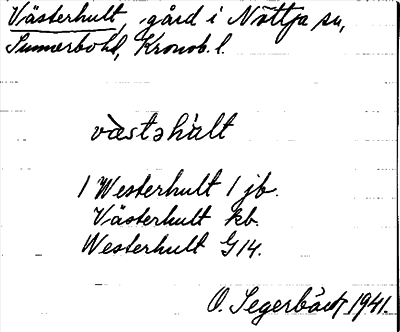 Västerhult, gård i Nöttja sn,
Sunnerbo hd, Kronob. l.
væ̀stəhàlt
1 Westerhult 1 jb.
Västerhult kb.
Westerhult G14.
O. Segerbäck 1941.